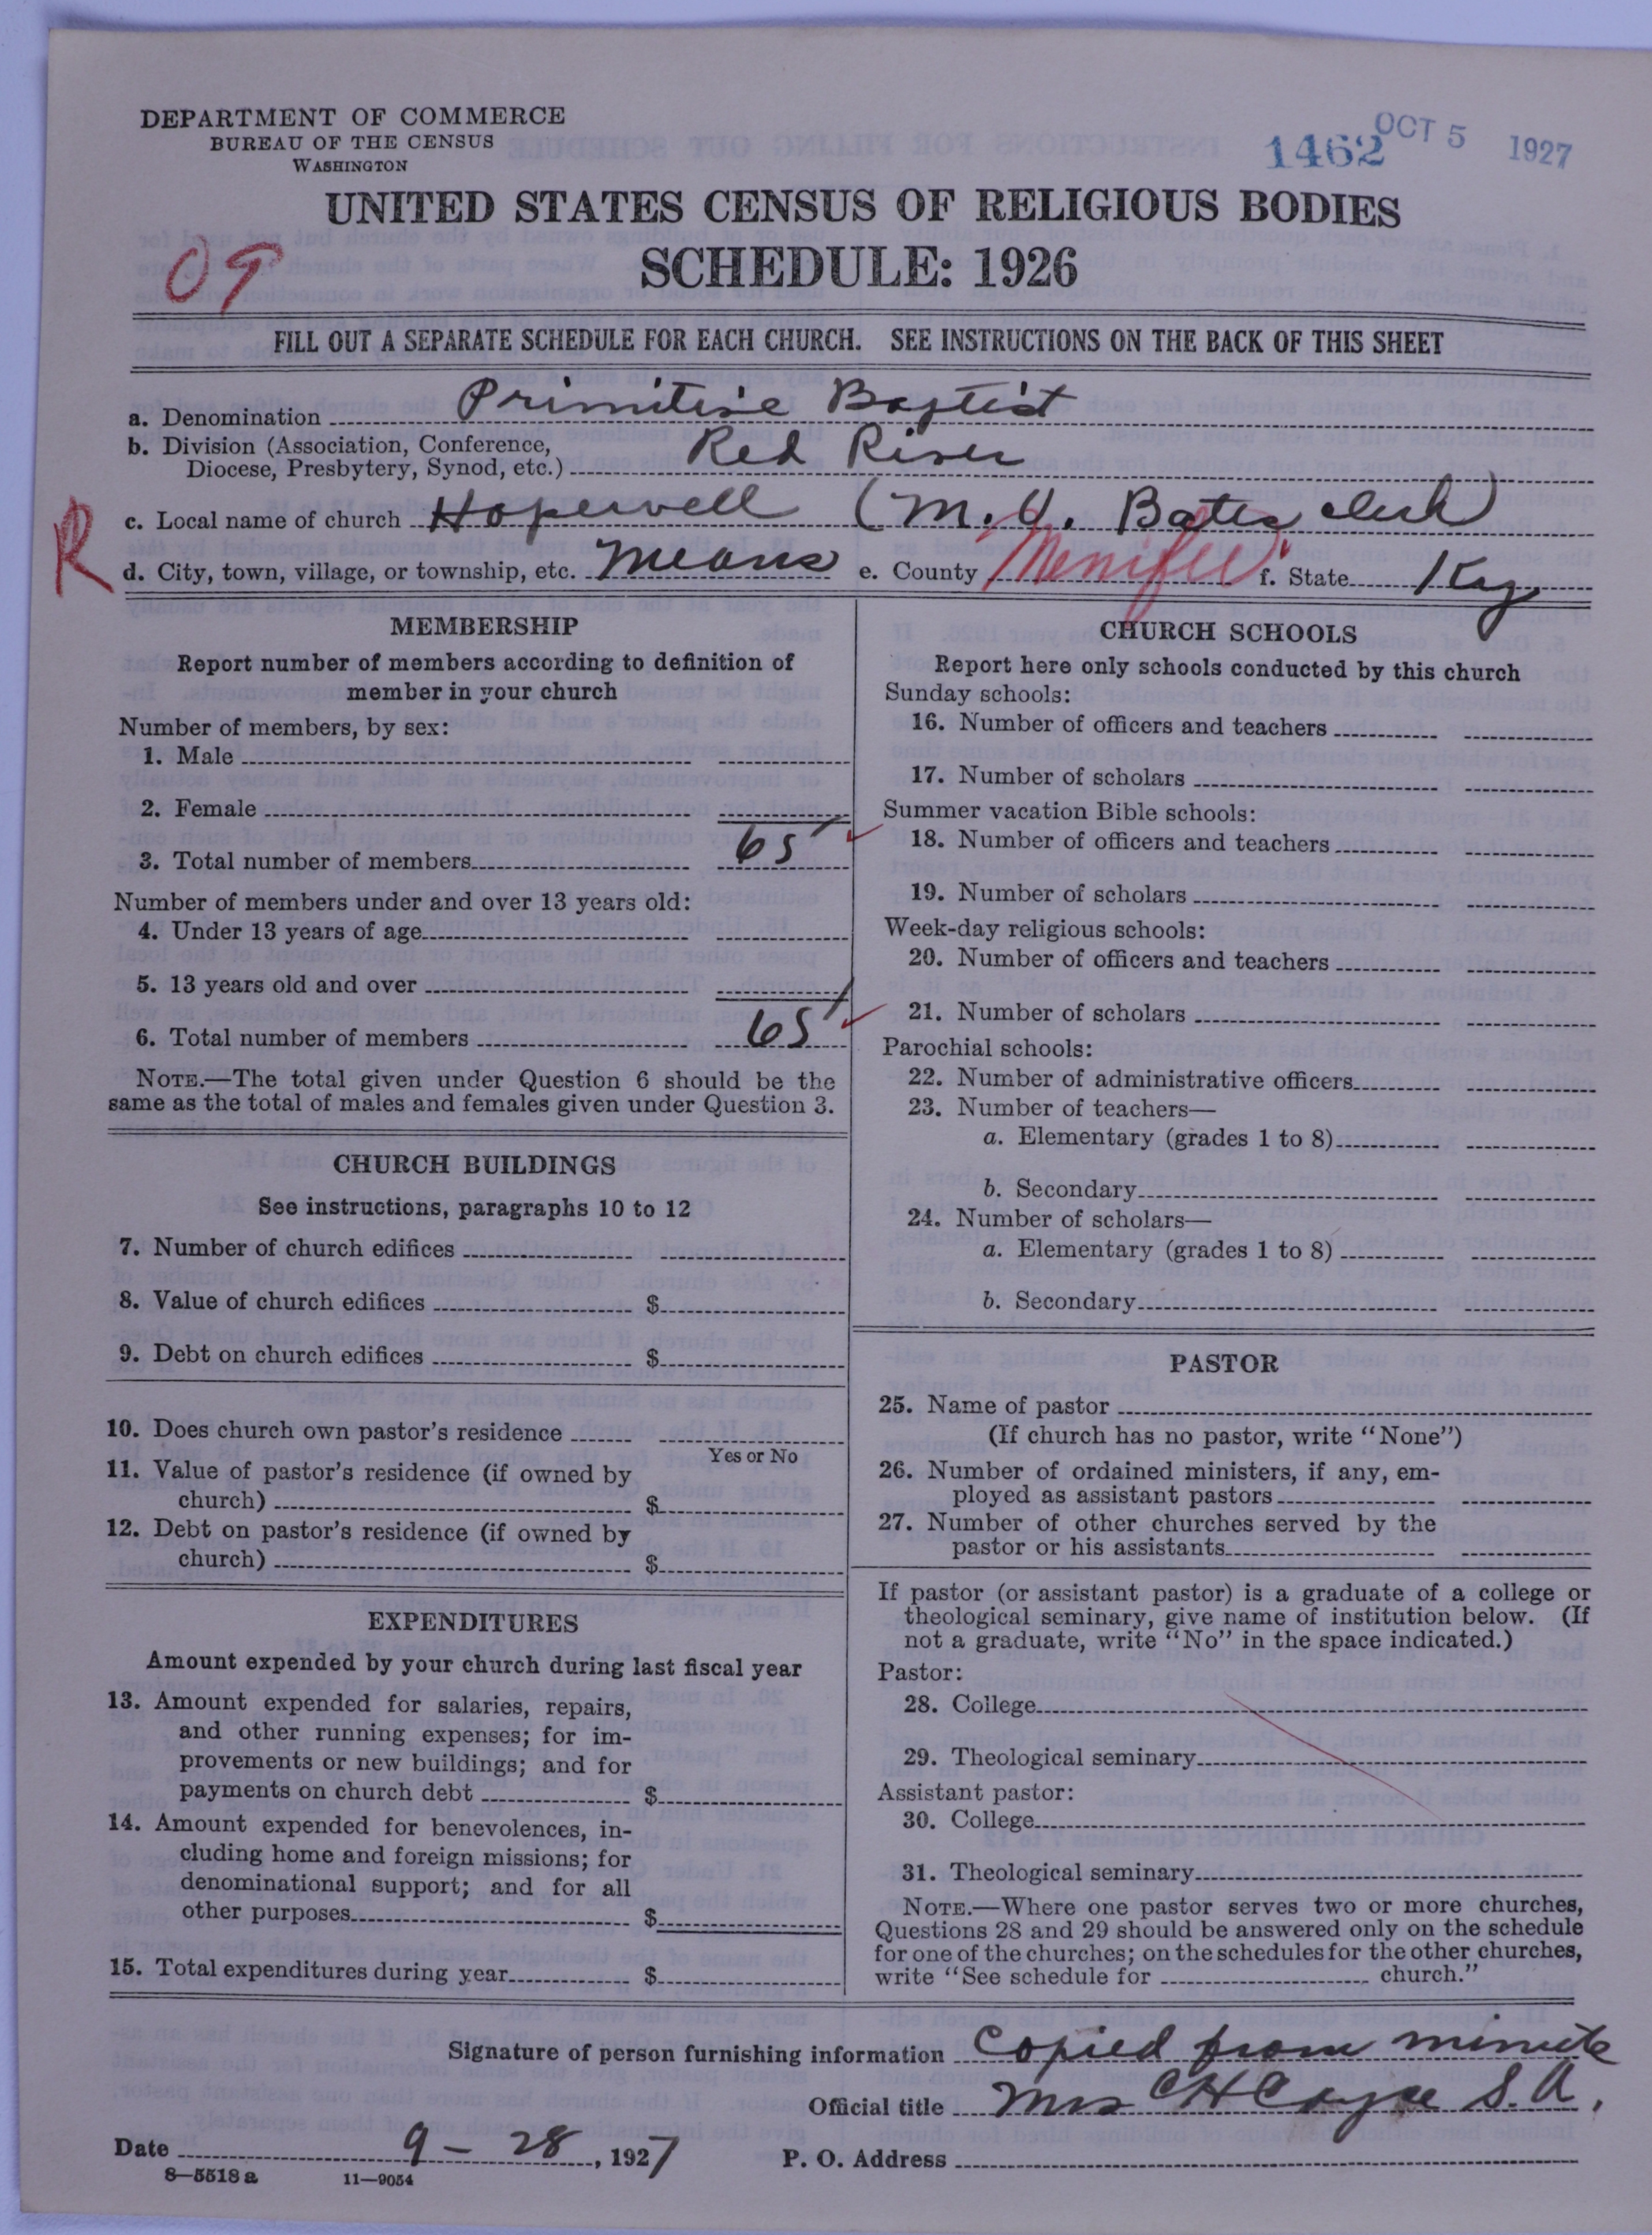 DEPARTMENT OF COMMERCE
BUREAU OF THE CENSUS
WASHINGTON
1462 OCT 5 1927
UNITED STATES CENSUS OF RELIGIOUS BODIES
SCHEDULE: 1926
09
FILL OUT A SEPARATE SCHEDULE FOR EACH CHURCH. SEE INSTRUCTIONS ON THE BACK OF THIS SHEET
a. Denomination Primitive Baptist
b. Division (Association, Conference,
Diocese, Presbytery, Synod, etc.) Red River
R
c. Local name of church Hopewell (M. Bates clerk)
d. City, town, village, or township, etc. Means e. County Menifee f. State Ky
MEMBERSHIP
Report number of members according to definition of
member in your church
Number of members, by sex:
1. Male
2. Female
3. Total number of members 65
Number of members under and over 13 years old:
4. Under 13 years of age
5. 13 years old and over
6. Total number of members 65
NOTE.—The total given under Question 6 should be the
same as the total of males and females given under Question 3.
CHURCH BUILDINGS
See instructions, paragraphs 10 to 12
7. Number of church edifices
8. Value of church edifices $
9. Debt on church edifices $
10. Does church own pastor's residence
Yes or No
11. Value of pastor's residence (if owned by
church) $
12. Debt on pastor's residence (if owned by
church) $
EXPENDITURES
Amount expended by your church during last fiscal year
13. Amount expended for salaries, repairs,
and other running expenses; for im-
provements or new buildings; and for
payments on church debt $
14. Amount expended for benevolences, in-
cluding home and foreign missions; for
denominational support; and for all
other purposes $
15. Total expenditures during year $
CHURCH SCHOOLS
Report here only schools conducted by this church
Sunday schools:
16. Number of officers and teachers
17. Number of scholars
Summer vacation Bible schools:
18. Number of officers and teachers
19. Number of scholars
Week-day religious schools:
20. Number of officers and teachers
21. Number of scholars
Parochial schools:
22. Number of administrative officers
23. Number of teachers—
a. Elementary (grades 1 to 8)
b. Secondary
24. Number of scholars—
a. Elementary (grades 1 to 8)
b. Secondary
PASTOR
25. Name of pastor
(If church has no pastor, write "None")
26. Number of ordained ministers, if any, em-
ployed as assistant pastors
27. Number of other churches served by the
pastor or his assistants
If pastor (or assistant pastor) is a graduate of a college or
theological seminary, give name of institution below. (If
not a graduate, write "No" in the space indicated.)
Pastor:
28. College
29. Theological seminary
Assistant pastor:
30. College
31. Theological seminary
NOTE.—Where one pastor serves two or more churches,
Questions 28 and 29 should be answered only on the schedule
for one of the churches; on the schedules for the other churches,
write "See schedule for church."
Signature of person furnishing information Copied from minute
Official title Mrs C H Cayce S. A.
Date 9-28, 1927 P. O. Address
8-5518a 11-9054